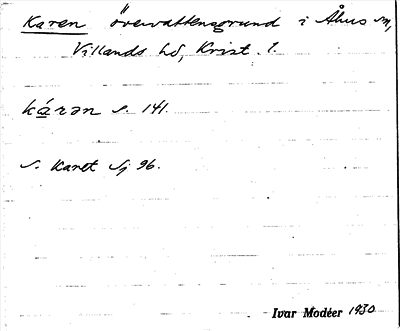 Karen övervattensgrund i Åhus sn,
Villands hd, Krist. l.
kárən s. 141.
S. Karet Sj 96.
Ivar Modéer 1930